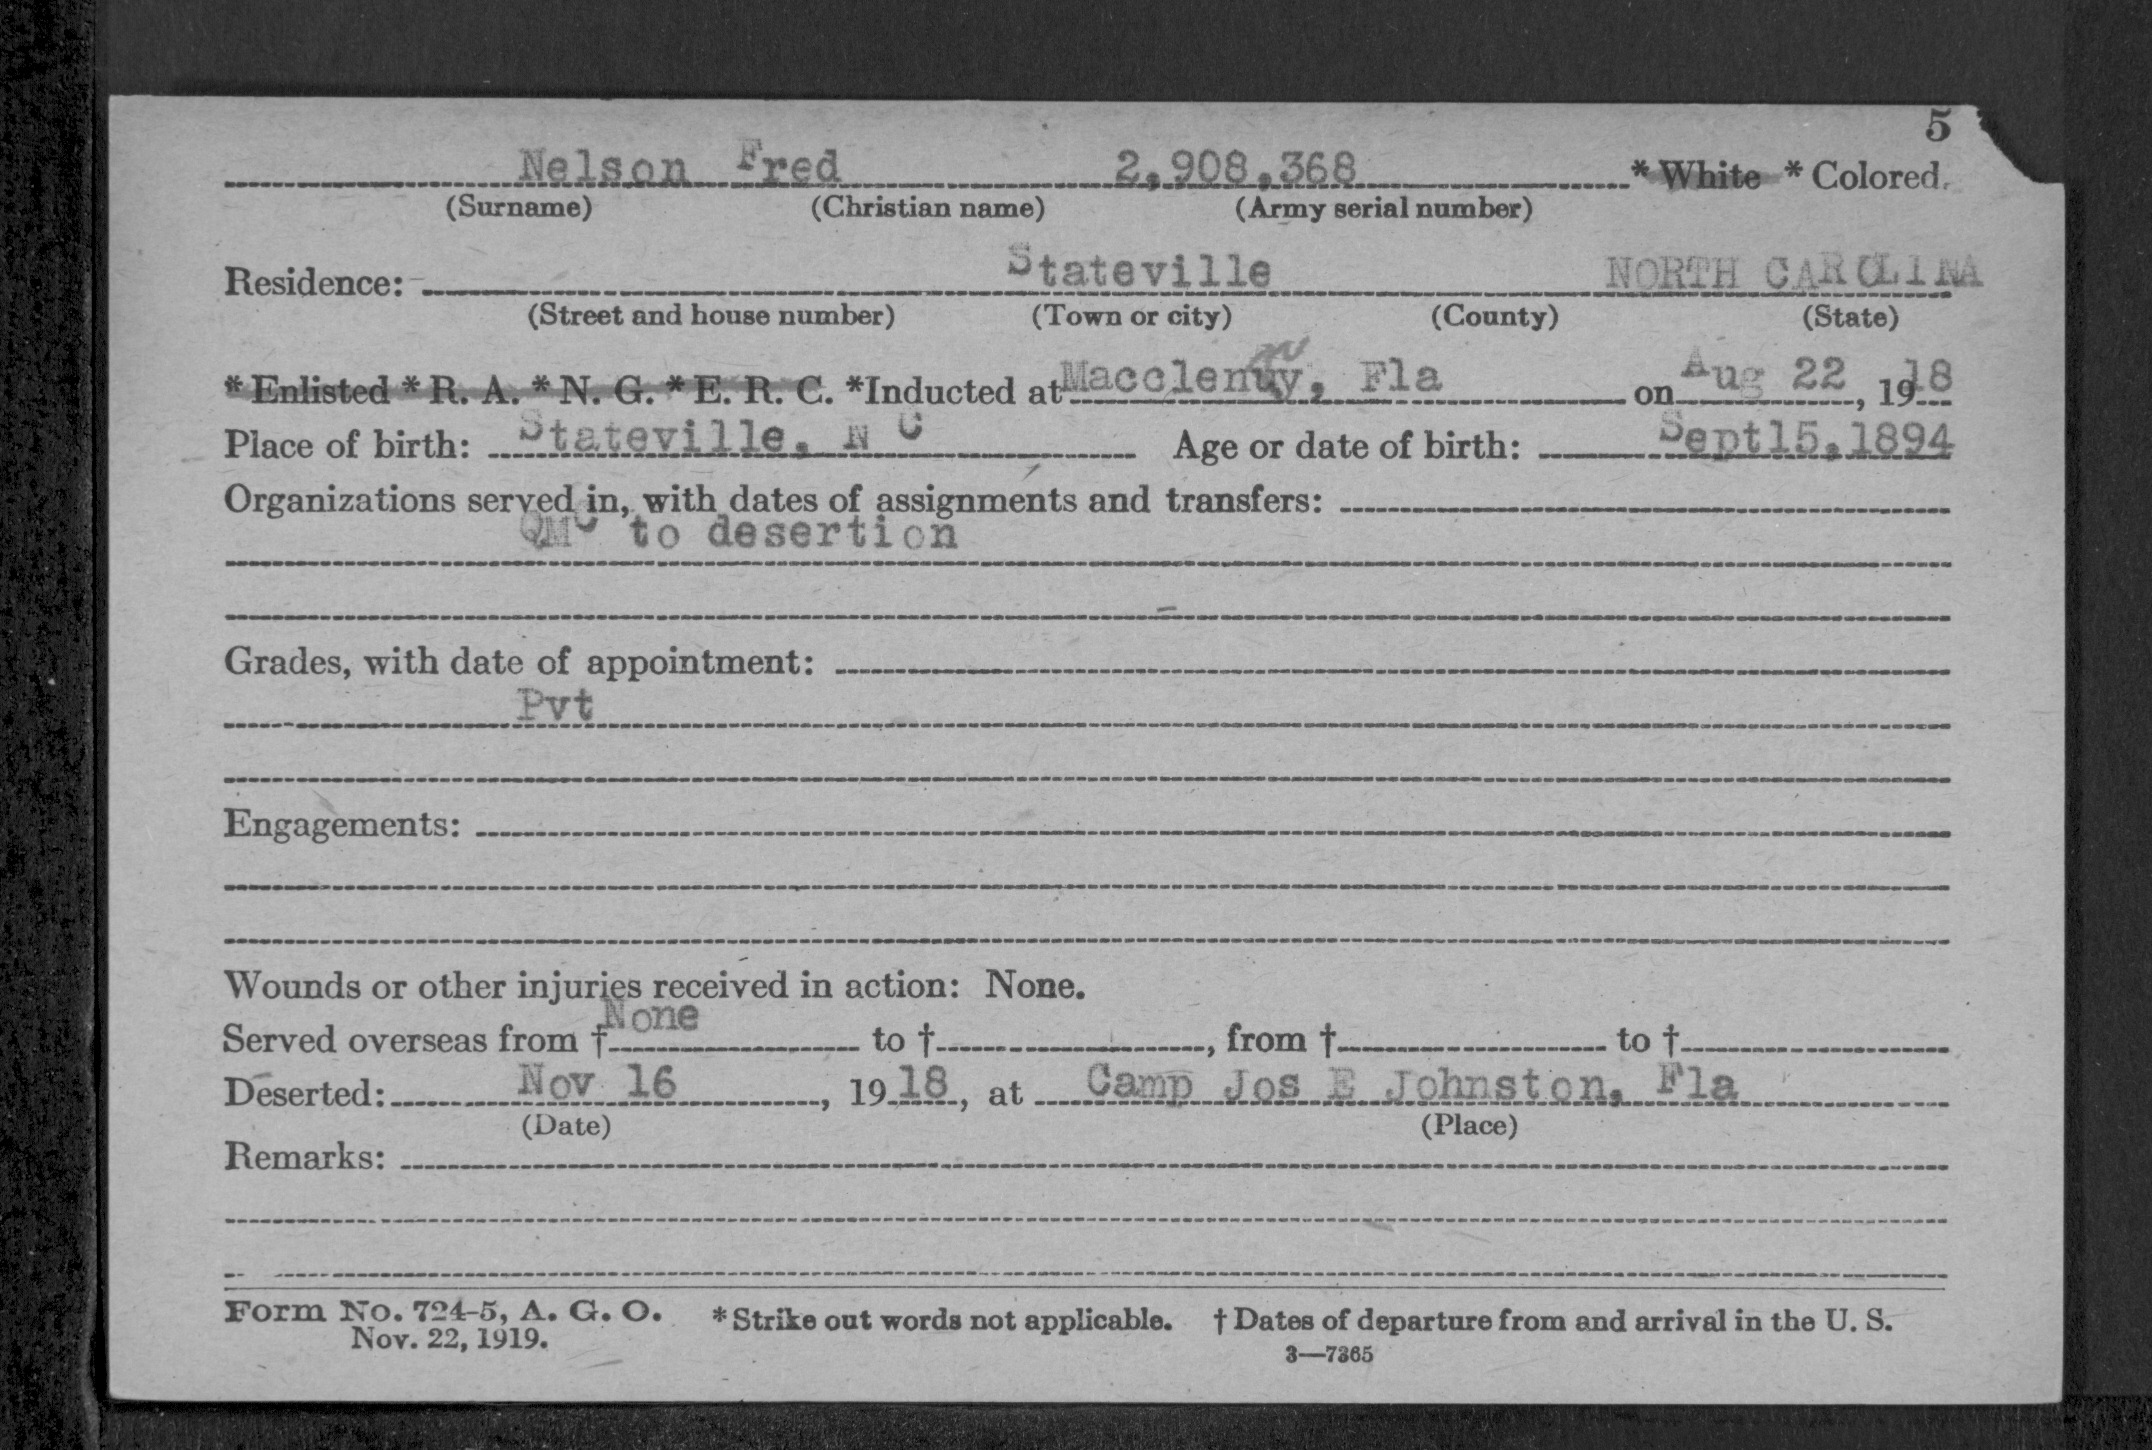 5
Nelson Fred 2,908,368 * White * Colored.
(Surname) (Christian name) (Army serial number)
Residence: Stateville NORTH CAROLINA
(Street and house number) (Town or city) (County) (State)
* Enlisted * R. A. * N. G. * E. R. C. *Inducted at Macclenny, Fla on Aug 22, 1918
Place of birth: Stateville, N C Age or date of birth: Sept15,1894
Organizations served in, with dates of assignments and transfers:
QMC to desertion
Grades, with date of appointment:
Pvt
Engagements:
Wounds or other injuries received in action: None.
Served overseas from † None to †, from † to †
Deserted: Nov 16, 1918, at Camp Jos E Johnston, Fla
(Date) (Place)
Remarks:
Form No. 724-5, A. G. O. * Strike out words not applicable. † Dates of departure from and arrival in the U. S.
Nov. 22, 1919. 3—7365